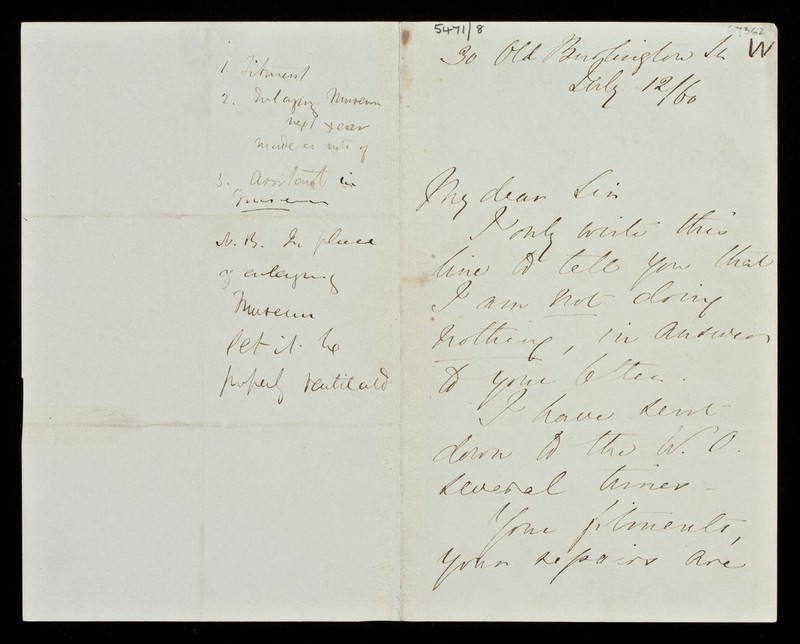 1. Fitment
2. Enlarging Museum
next year
made a note of
3. Assistant in
Museum
N.B. In place
of enlarging
Museum
let it be
properly ventilated
5471/8
57362
W
30 Old Burlington St
July 12/60
My dear Sir
I only write this
line to tell you that
I am not doing
nothing, in answer
to your letter.
I have sent
down to the W.O.
several times -
Your fitments,
your repairs are